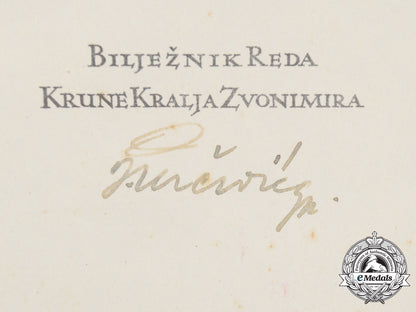 BILJEŽNIK REDA
KRUNE KRALJA ZVONIMIRA
eMedals